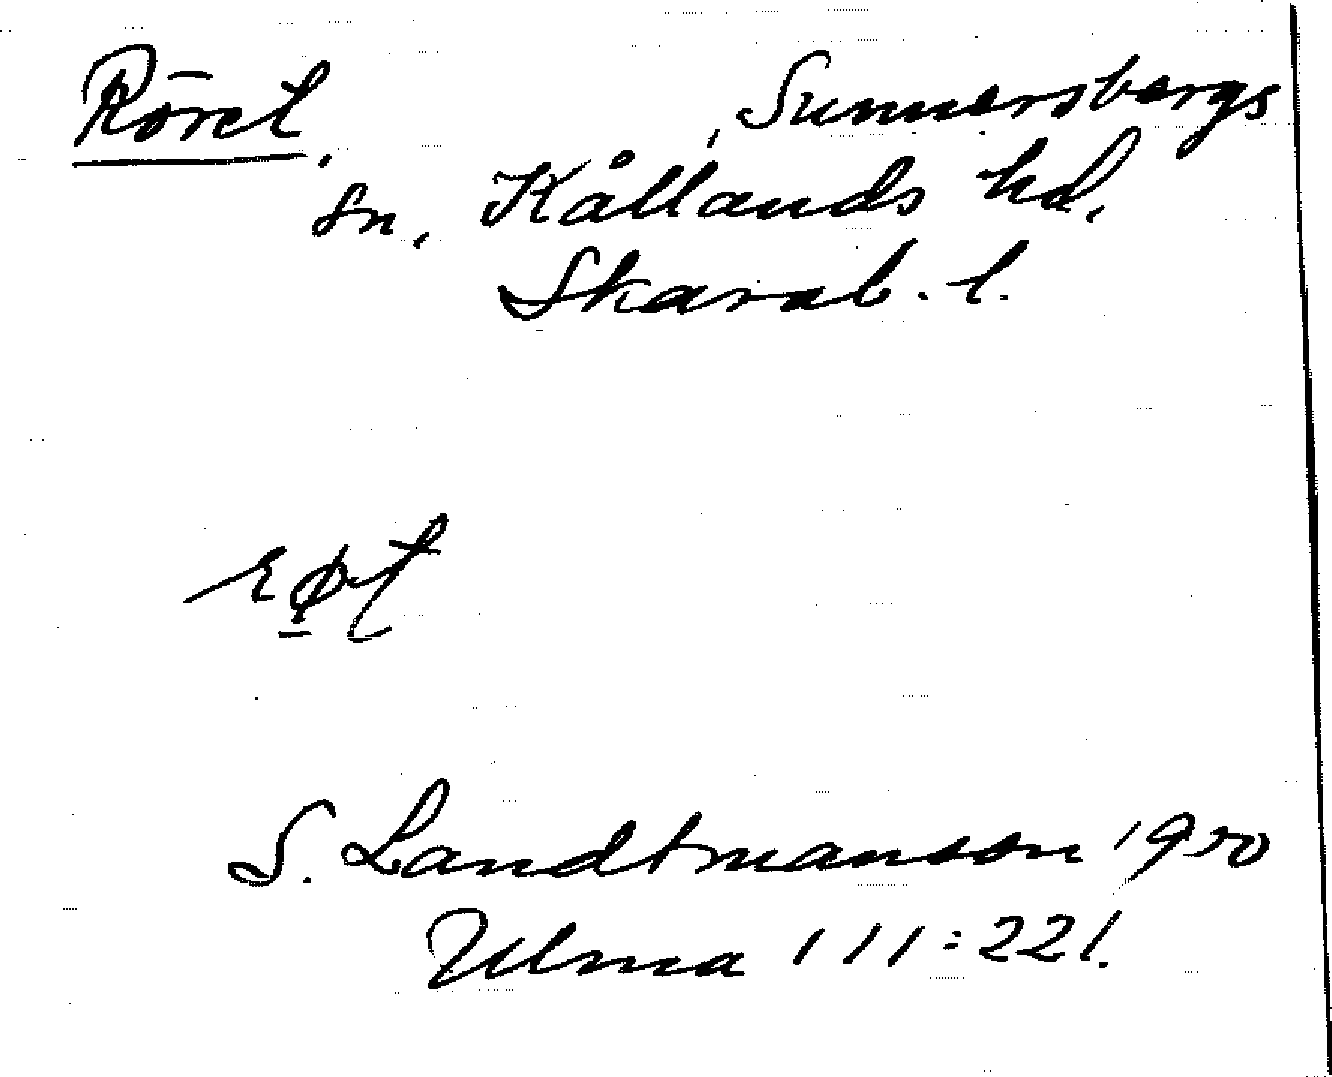 Röret, Sunnersbergs
sn, Kållands hd,
Skarab. l.
S. Landtmanson 1950
Ulma 111:221.